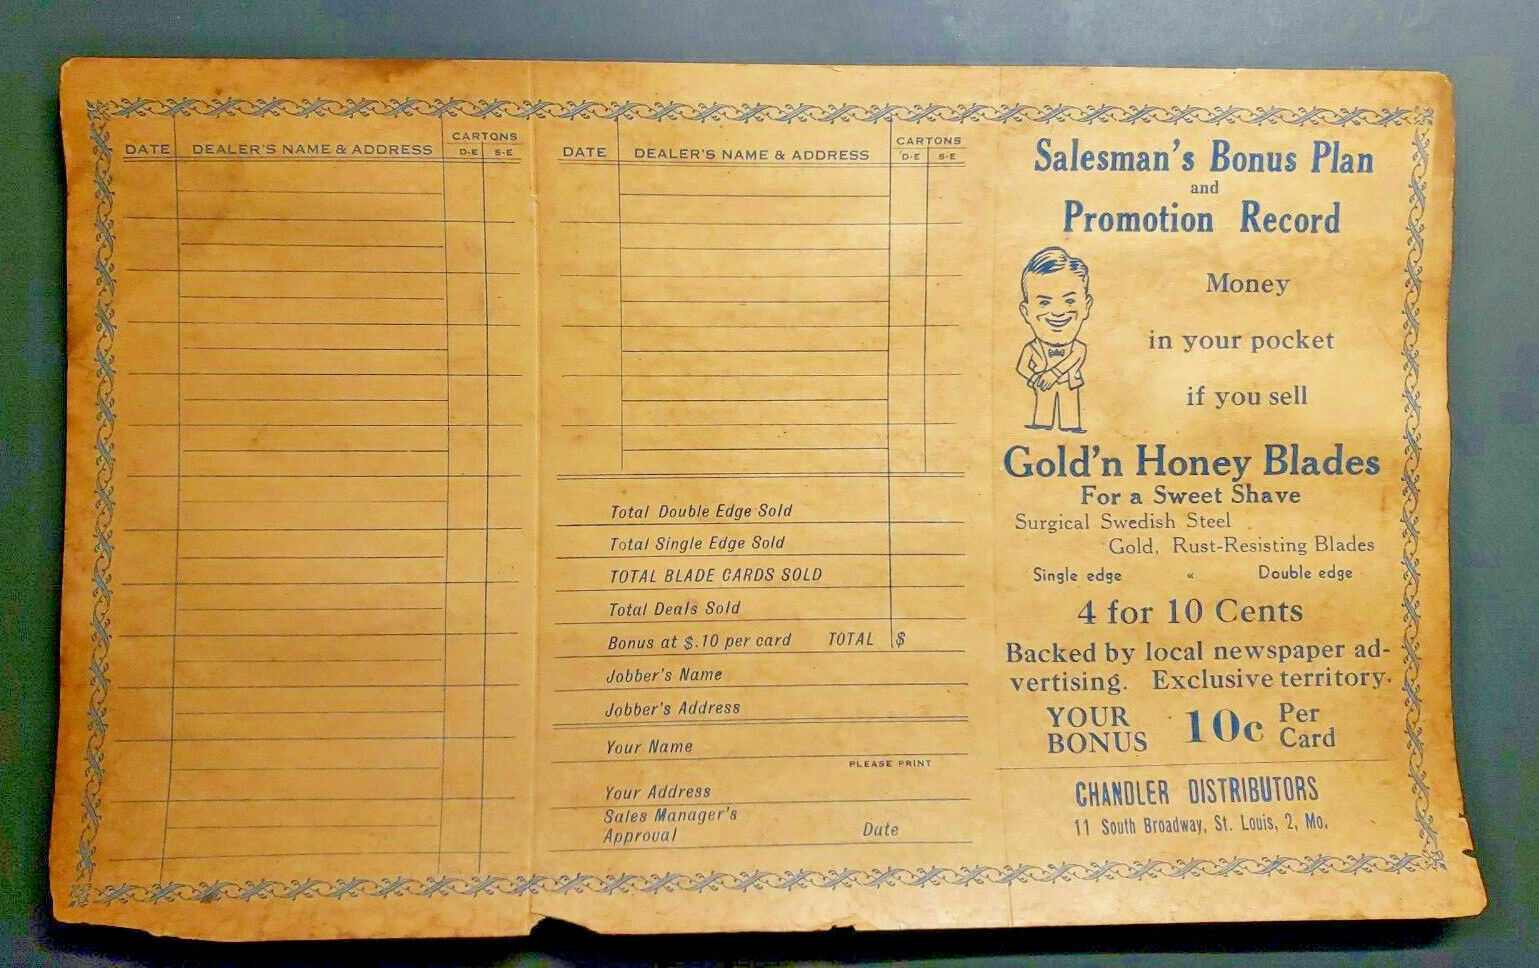 DATE DEALER'S NAME & ADDRESS CARTONS
D-E S-E
DATE DEALER'S NAME & ADDRESS CARTONS
D-E S-E
Total Double Edge Sold
Total Single Edge Sold
TOTAL BLADE CARDS SOLD
Total Deals Sold
Bonus at $.10 per card TOTAL $
Jobber's Name
Jobber's Address
Your Name
PLEASE PRINT
Your Address
Sales Manager's
Approval Date
Salesman's Bonus Plan
and
Promotion Record
Money
in your pocket
if you sell
Gold'n Honey Blades
For a Sweet Shave
Surgical Swedish Steel
Gold, Rust-Resisting Blades
Single edge « Double edge
4 for 10 Cents
Backed by local newspaper ad-
vertising. Exclusive territory.
YOUR
BONUS 10c Per
Card
CHANDLER DISTRIBUTORS
11 South Broadway, St. Louis, 2, Mo.